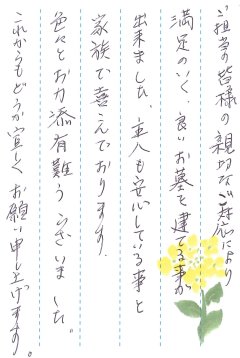 ご担当の皆様の親切なご対応により
満足のいく、良いお墓を建てる事が
出来ました、主人も安心している事と
家族で喜んでおります。
色々とお力添有難うございました。
これからもどうか宜しくお願い申し上げます。